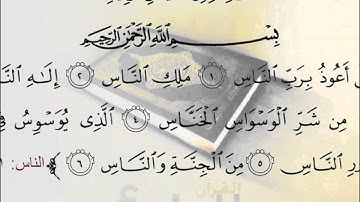 بِسْمِ ٱللَّهِ ٱلرَّحْمَٰنِ ٱلرَّحِيمِ
أَعُوذُ بِرَبِّ ٱلنَّاسِ ١ مَلِكِ ٱلنَّاسِ ٢ إِلَٰهِ ٱلنَّا
مِن شَرِّ ٱلْوَسْوَاسِ ٱلْخَنَّاسِ ٤ ٱلَّذِى يُوَسْوِسُ فِى
ورِ ٱلنَّاسِ ٥ مِنَ ٱلْجِنَّةِ وَٱلنَّاسِ ٦ الناس:
القرآن